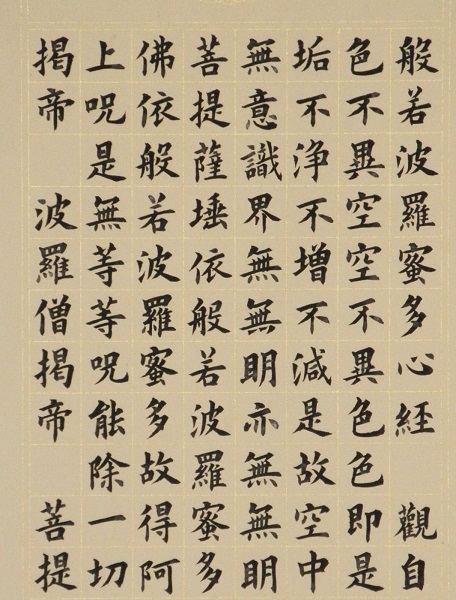 般若波羅蜜多心経　觀自
色不異空空不異色色即是
垢不浄不增不減是故空中
無意識界無無明亦無無明
菩提薩埵依般若波羅蜜多
佛依般若波羅蜜多故得阿
上呪是無等等呪能除一切
揭帝　波羅僧揭帝　菩提